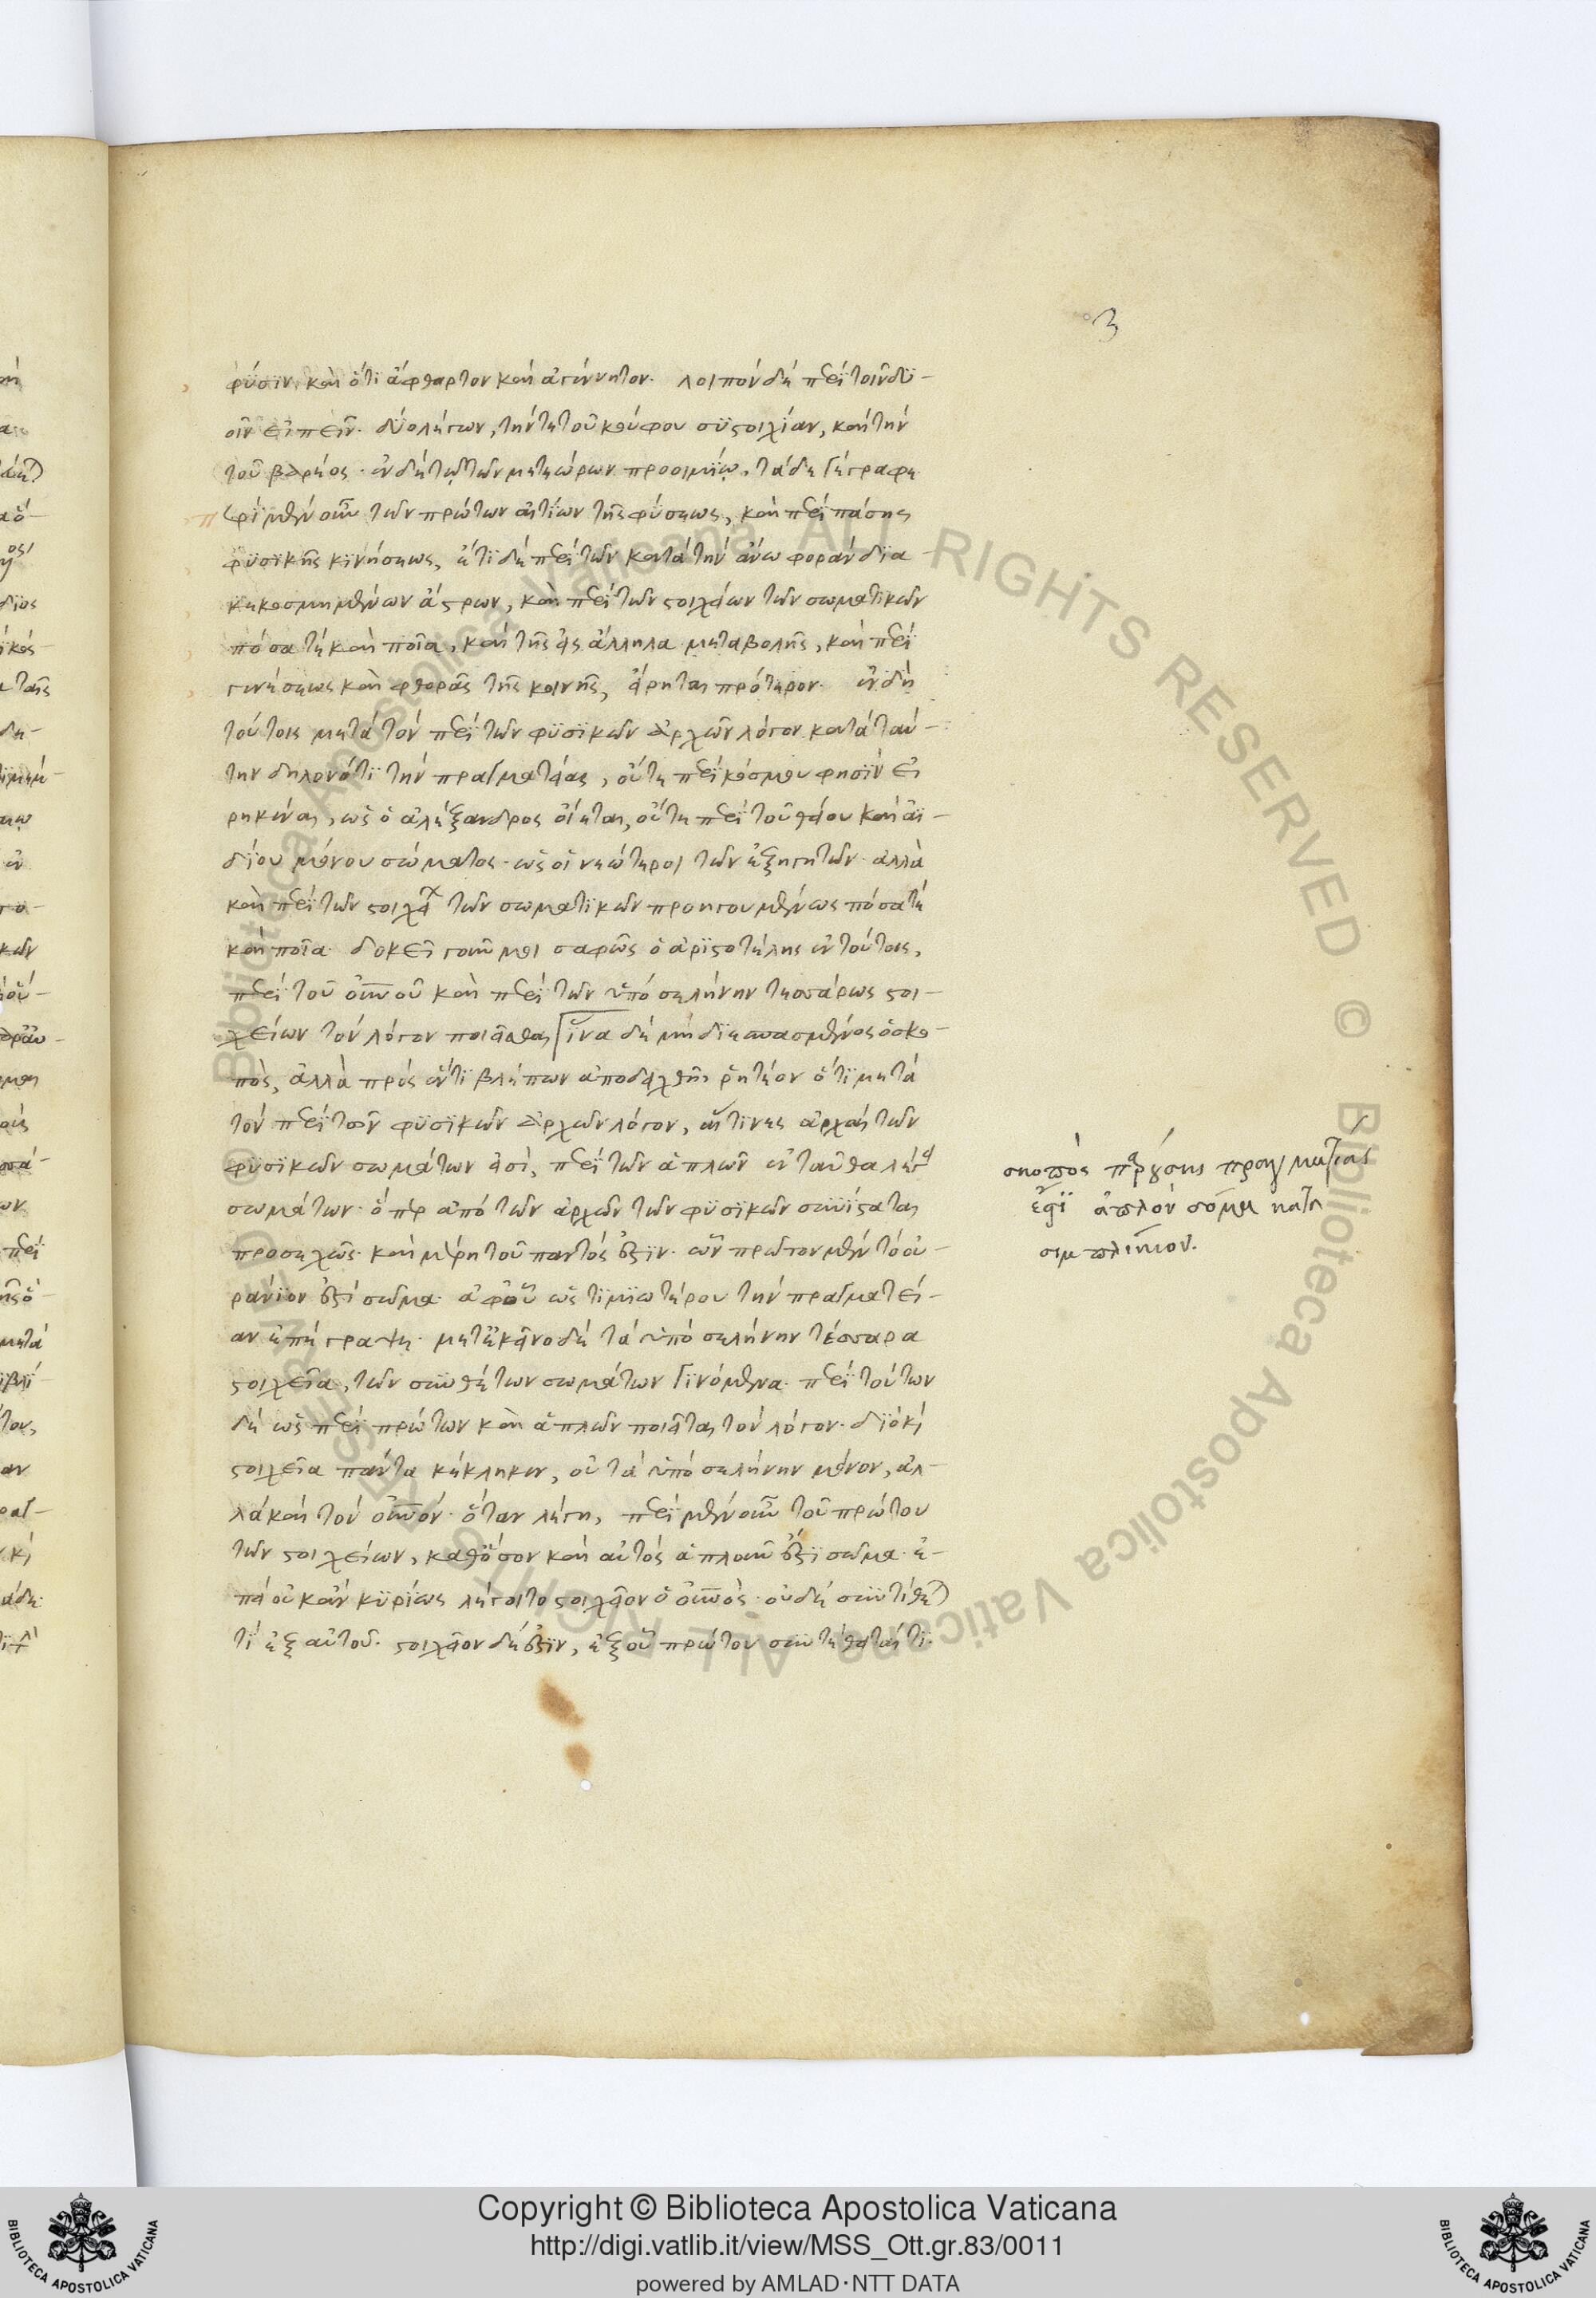 3
φύσιν καὶ ὅτι ἄφθαρτον καὶ ἀγέννητον. λοιπὸν δὲ περὶ τοῖν δυ-
οῖν εἰπεῖν. δύο λέγων, τήν τε τοῦ κούφου συστοιχίαν, καὶ τὴν
τοῦ βαρέος. ἐν δὲ τῷ τῶν μετεώρων προοιμίῳ, τάδε γέγραφε
περὶ μὲν οὖν τῶν πρώτων αἰτίων τῆς φύσεως, καὶ περὶ πάσης
φυσικῆς κινήσεως, ἔτι δὲ περὶ τῶν κατὰ τὴν ἄνω φορὰν δια
κεκοσμημένων ἄστρων, καὶ περὶ τῶν στοιχείων τῶν σωματικῶν
πόσα τὲ καὶ ποῖα, καὶ τῆς εἰς ἄλληλα μεταβολῆς, καὶ περὶ
γενέσεως καὶ φθορᾶς τῆς κοινῆς, εἴρηται πρότερον. ἐν δὲ
τούτοις μετὰ τὸν περὶ τῶν φυσικῶν ἀρχῶν λόγον κατὰ ταύ-
την δηλονότι τὴν πραγματείας, οὔτε περὶ κόσμου φησὶν εἰ
ρηκέναι, ὡς ὁ ἀλέξανδρος οἴεται, οὔτε περὶ τοῦ θείου καὶ ἀϊ-
δίου μόνου σώματος. ὡς οἱ νεώτεροι τῶν ἐξηγητῶν. ἀλλὰ
καὶ περὶ τῶν στοιχεί τῶν σωματικῶν προηγουμένως πόσα τὲ
καὶ ποῖα. δοκεῖ γοῦν μοι σαφῶς ὁ ἀριστοτέλης ἐν τούτοις,
περὶ τοῦ οὐνοῦ καὶ περὶ τῶν ὑπὸ σελήνην τεσσάρων στοι-
χείων τὸν λόγον ποιεῖσθαι ἵνα δὲ μὴ διεσπασμένος ὁ σκο
πὸς, ἀλλὰ πρὸς ἕν τι βλέπων ἀποδειχθῆ, ῥητέον ὅτι μετὰ
τὸν περὶ τῶν φυσικῶν ἀρχῶν λόγον, αἵτινες ἀρχαὶ τῶν
φυσικῶν σωμάτων εἰσὶ, περὶ τῶν ἁπλῶν ἐνταῦθα λέγει
σωμάτων. ὅπερ ἀπὸ τῶν ἀρχῶν τῶν φυσικῶν συνίσταται
προσεχῶς. καὶ μέρη τοῦ παντός ἐστιν. ὧν πρῶτον μὲν τὸ οὐ-
ράνιον ἐστὶ σῶμα. ἀφ' οὗ ὡς τιμιωτέρου τὴν πραγματεί-
αν ἐπέγραψε. μετ' ἐκεῖνο δὲ τὰ ὑπὸ σελήνην τέσσαρα
στοιχεῖα, τῶν συνθέτων σωμάτων γινόμενα. περὶ τούτων
δὲ ὡς περὶ πρώτων καὶ ἁπλῶν ποιεῖται τὸν λόγον. διὸ καὶ
στοιχεῖα πάντα κέκληκεν, οὐ τὰ ὑπὸ σελήνην μόνον, ἀλ-
λὰ καὶ τὸν οὐνόν. ὅταν λέγη, περὶ μὲν οὖν τοῦ πρώτου
τῶν στοιχείων, καθόσον καὶ αὐτὸς ἁπλοῦν ἐστι σῶμα. ἐ-
πεὶ οὐκ ἂν κυρίως λέγοιτο στοιχεῖον ὁ οὐνὸς. οὐδὲ συντίθεται
τί ἐξ αὐτοῦ. στοιχεῖον δέ ἐστιν, ἐξ οὗ πρώτου συντέθειταί τι.
σκοπὸς παρούσης πραγματείας
ἐστὶ ἁπλὸν σόμα κατὰ
σιμπλίκιον.
Copyright © Biblioteca Apostolica Vaticana
http://digi.vatlib.it/view/MSS_Ott.gr.83/0011
powered by AMLAD·NTT DATA